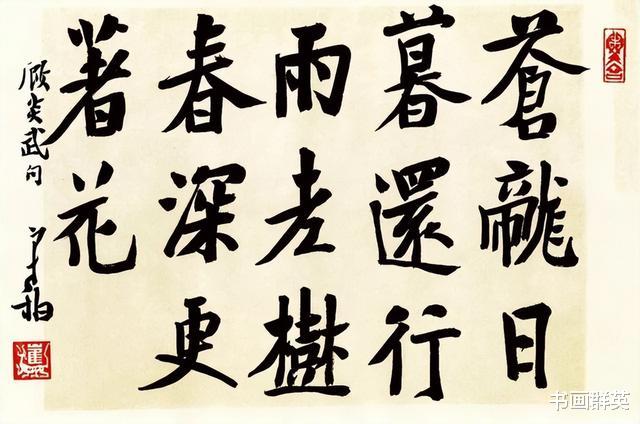 蒼龍日
暮還行
雨老樹
春深更
著花
顾炎武句
书画群英